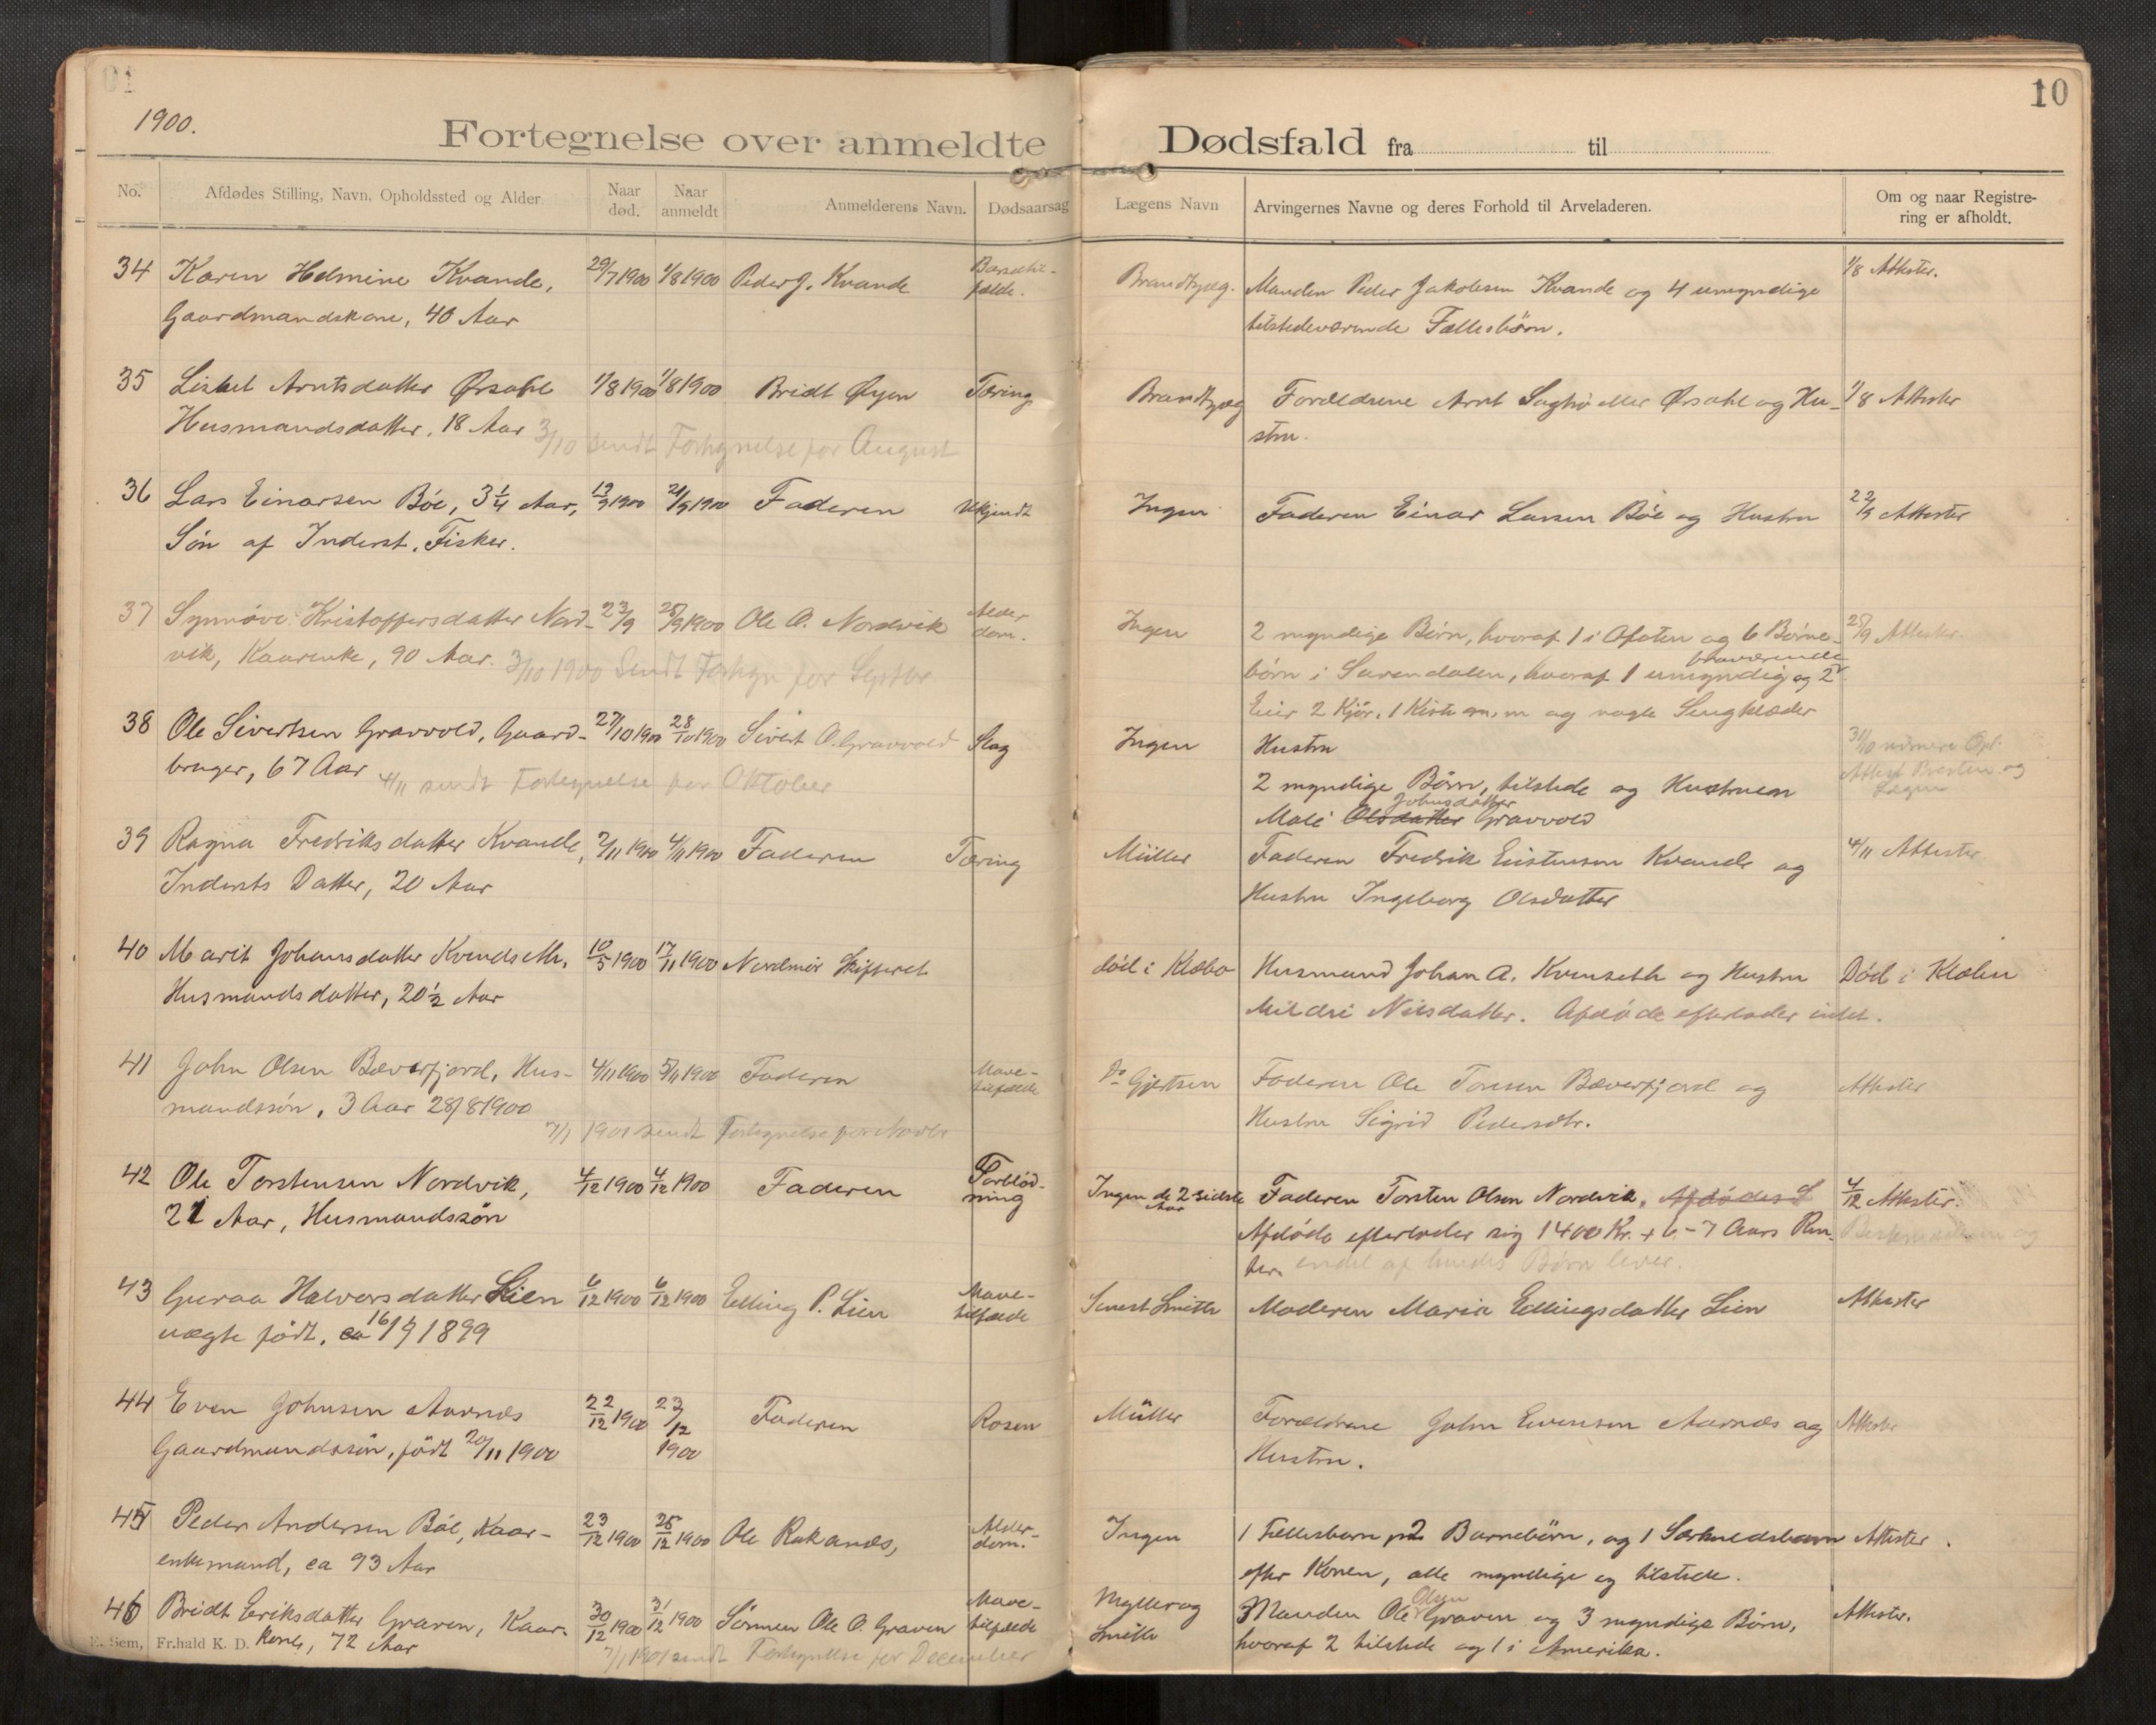 10
1900.
Fortegnelse over anmeldte Dødsfald fra til
No. Afdødes Stilling, Navn, Opholdssted og Alder. Naar død. Naar anmeldt Anmelderens Navn. Dødsaarsag Lægens Navn Arvingernes Navne og deres Forhold til Arveladeren. Om og naar Registrering er afholdt.
34 Karen Helmine Kvande, 29/7 1900 1/8 1900 Peder J. Kvande Brandtzæg. Manden Peder Jakobsen Kvande og 4 umyndige 1/8 Attester.
Gaardmandskone, 40 Aar tilstedeværende Fællesbörn.
35 Lisbet Arntsdatter Ørsahl 1/8 1900 1/8 1900 Bridt Øyen Tæring Brandtzæg Forældrene Arnt Ørsahl og Hu- 1/8 Attester
Husmandsdatter, 18 Aar stru.
3/10 sendt Fortegnelse for August
36 Lars Einarsen Böe, 3 1/4 Aar, 19/9 1900 21/9 1900 Faderen Ukjendt Ingen Faderen Einar Larsen Böe og Hustru 22/9 Attester
Sön af Inderst, Fisker.
37 Synnöve Kristoffersdatter Nord- 23/9 25/9 1900 Ole O. Nordvik Alder- dom. Ingen 2 myndige Börn, hvoraf 1 i Ofoten og 6 Börne- 25/9 Attester.
vik, Kaarenke, 90 Aar. börn i Surendalen, hvoraf 1 umyndig og 2 fraværende
3/10 1900 Sendt Fortegn for Septbr
Eier 2 Kjör, 1 Kiste m. m og nogle Sengklæder
38 Ole Sivertsen Gravvold, Gaard- 27/10 1900 28/10 1900 Sivert O. Gravvold Slag Ingen Hustru 31/10
bruger, 67 Aar 2 myndige Börn, tilstede og Hustruen
4/11 sendt Fortegnelse for Oktober
Mali Olsdatter Johnsdatter Gravvold
39 Ragna Fredriksdatter Kvande, 2/11 1900 4/11 1900 Faderen Tæring Müller Faderen Fredrik Eistensen Kvande og 4/11 Attester
Inderts Datter, 20 Aar Hustru Ingeborg Olsdatter
40 Marit Johansdatter Kvendseth, 10/5 1900 17/11 1900 Nordmör Skifteret död i Klæbo Husmand Johan A. Kvenseth og Hustru Död i Klæbu
Husmandsdatter, 20 1/2 Aar Mildri Nilsdatter. Afdöde efterlader intet.
41 John Olsen Bæverfjord, Hus- 4/11 1900 5/11 1900 Faderen Mave- tilfælde Dr Gjertsen Faderen Ole Toresen Bæverfjord og Attester
mandssön, 3 Aar 28/8 1900 Hustru Sigrid Pedersdtr.
7/1 1901 sendt Fortegnelse for Novbr
42 Ole Torstensen Nordvik, 4/12 1900 4/12 1900 Faderen Forblöd- ning Ingen de 2 sidste Aar Faderen Torsten Olsen Nordvik. Afdödes 4/12 Attester.
21 Aar, Husmandssön Afdöde efterlader sig 1400 Kr. + 6-7 Aars Ren-
ter. endel af hendes Börn lever.
43 Guraa Halvorsdatter Lien 6/12 1900 6/12 1900 Elling P. Lien Mave- tilfælde Senest Smith Moderen Maria Ellingsdatter Lien Attester
uægte födt, ca 16/7 1899
44 Even Johnsen Aarnes 22/12 1900 23/12 1900 Faderen Rosen Müller Forældrene John Evensen Aarnæs og Attester
Gaardmandssön, födt 20/11 1900 Hustru.
45 Peder Andersen Böe, Kaar- 23/12 1900 25/12 1900 Ole Rakanæs, Alder- dom. Ingen 1 Fellesbarn 2 Barnebörn, og 1 Særkuldsbarn Attester.
enkemand, ca 93 Aar efter Konen, alle myndige og tilstede.
46 Bridt Eeriksdatter Graven, Kaar- 30/12 1900 31/12 1900 Sönnen Ole O. Graven Mave- tilfælde Myller og Smith Manden Ole Olsen Graven og 3 myndige Börn, Attester.
kone, 72 Aar hvoraf 2 tilstede og 1 i Amerika.
7/1 1901 sendt Fortegnelse for December
E. Sem, Fr.hald K. D.